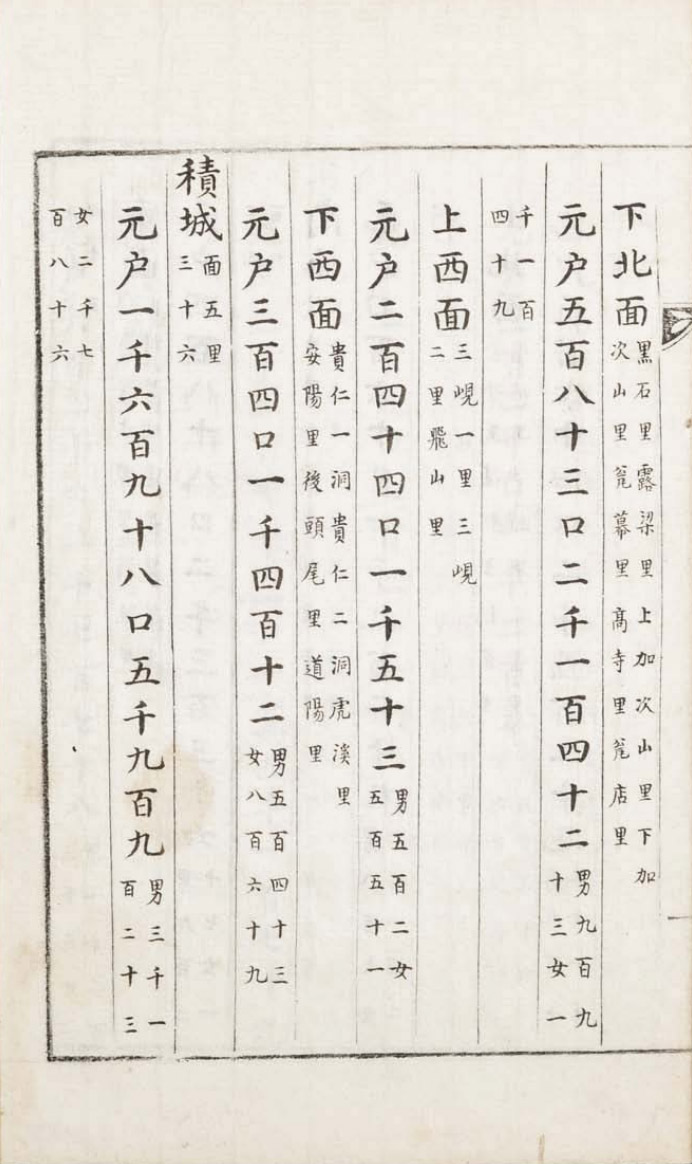 下北面
黑石里露梁里上加次山里下加
次山里瓮幕里髙寺里瓮店里
元户五百八十三口二千一百四十二
男九百九
十三女一
千一百
四十九
上西面
三峴一里三峴
二里飛山里
元户二百四十四口一千五十三
男五百二女
五百五十一
下西面
貴仁一洞貴仁二洞虎溪里
安陽里後頭尾里道陽里
元户三百四口一千四百十二
男五百四十三
女八百六十九
積城
面五里
三十六
元户一千六百九十八口五千九百九
男三千一
百二十三
女二千七
百八十六